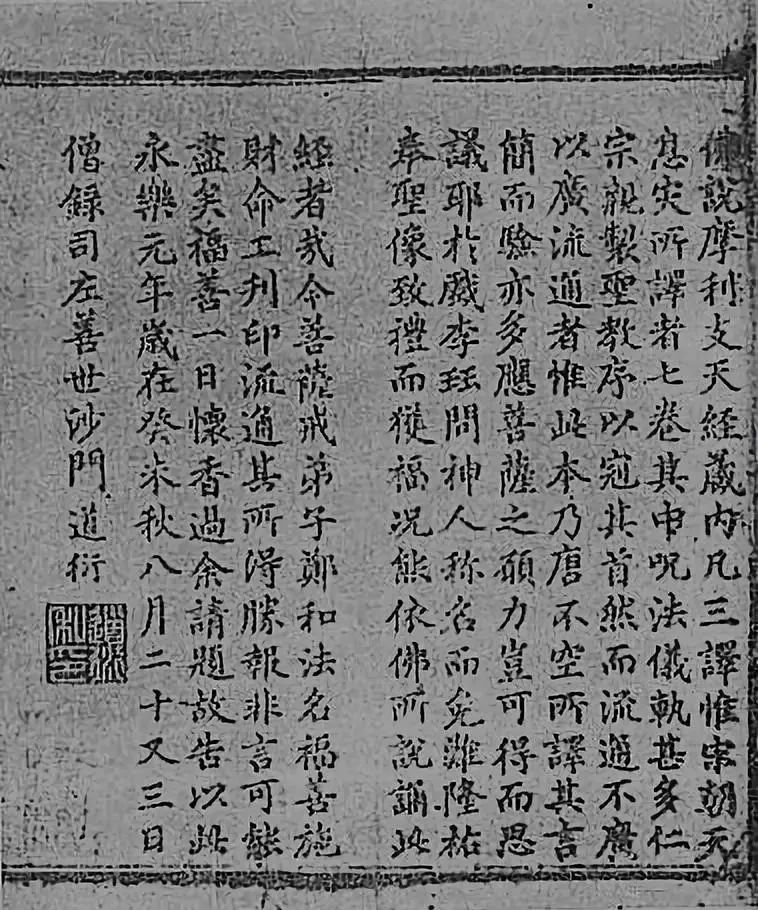 佛說摩利支天經藏內凡三譯惟宋朝天
息災所譯者七卷其中呪法儀軌甚多仁
宗親製聖教序以冠其首然而流通不廣
以廣流通者惟此本乃唐不空所譯其言
簡而驗亦多應菩薩之願力豈可得而思
議耶於戲李珏問神人称名而免難隆祐
奉聖像致禮而獲福况能依佛所說誦此
經者哉今菩薩戒弟子鄭和法名福善施
財命工刊印流通其所得勝報非言可能
盡矣福善一日懷香過余請題故告以此
永樂元年歲在癸未秋八月二十又三日
僧錄司左善世沙門道衍